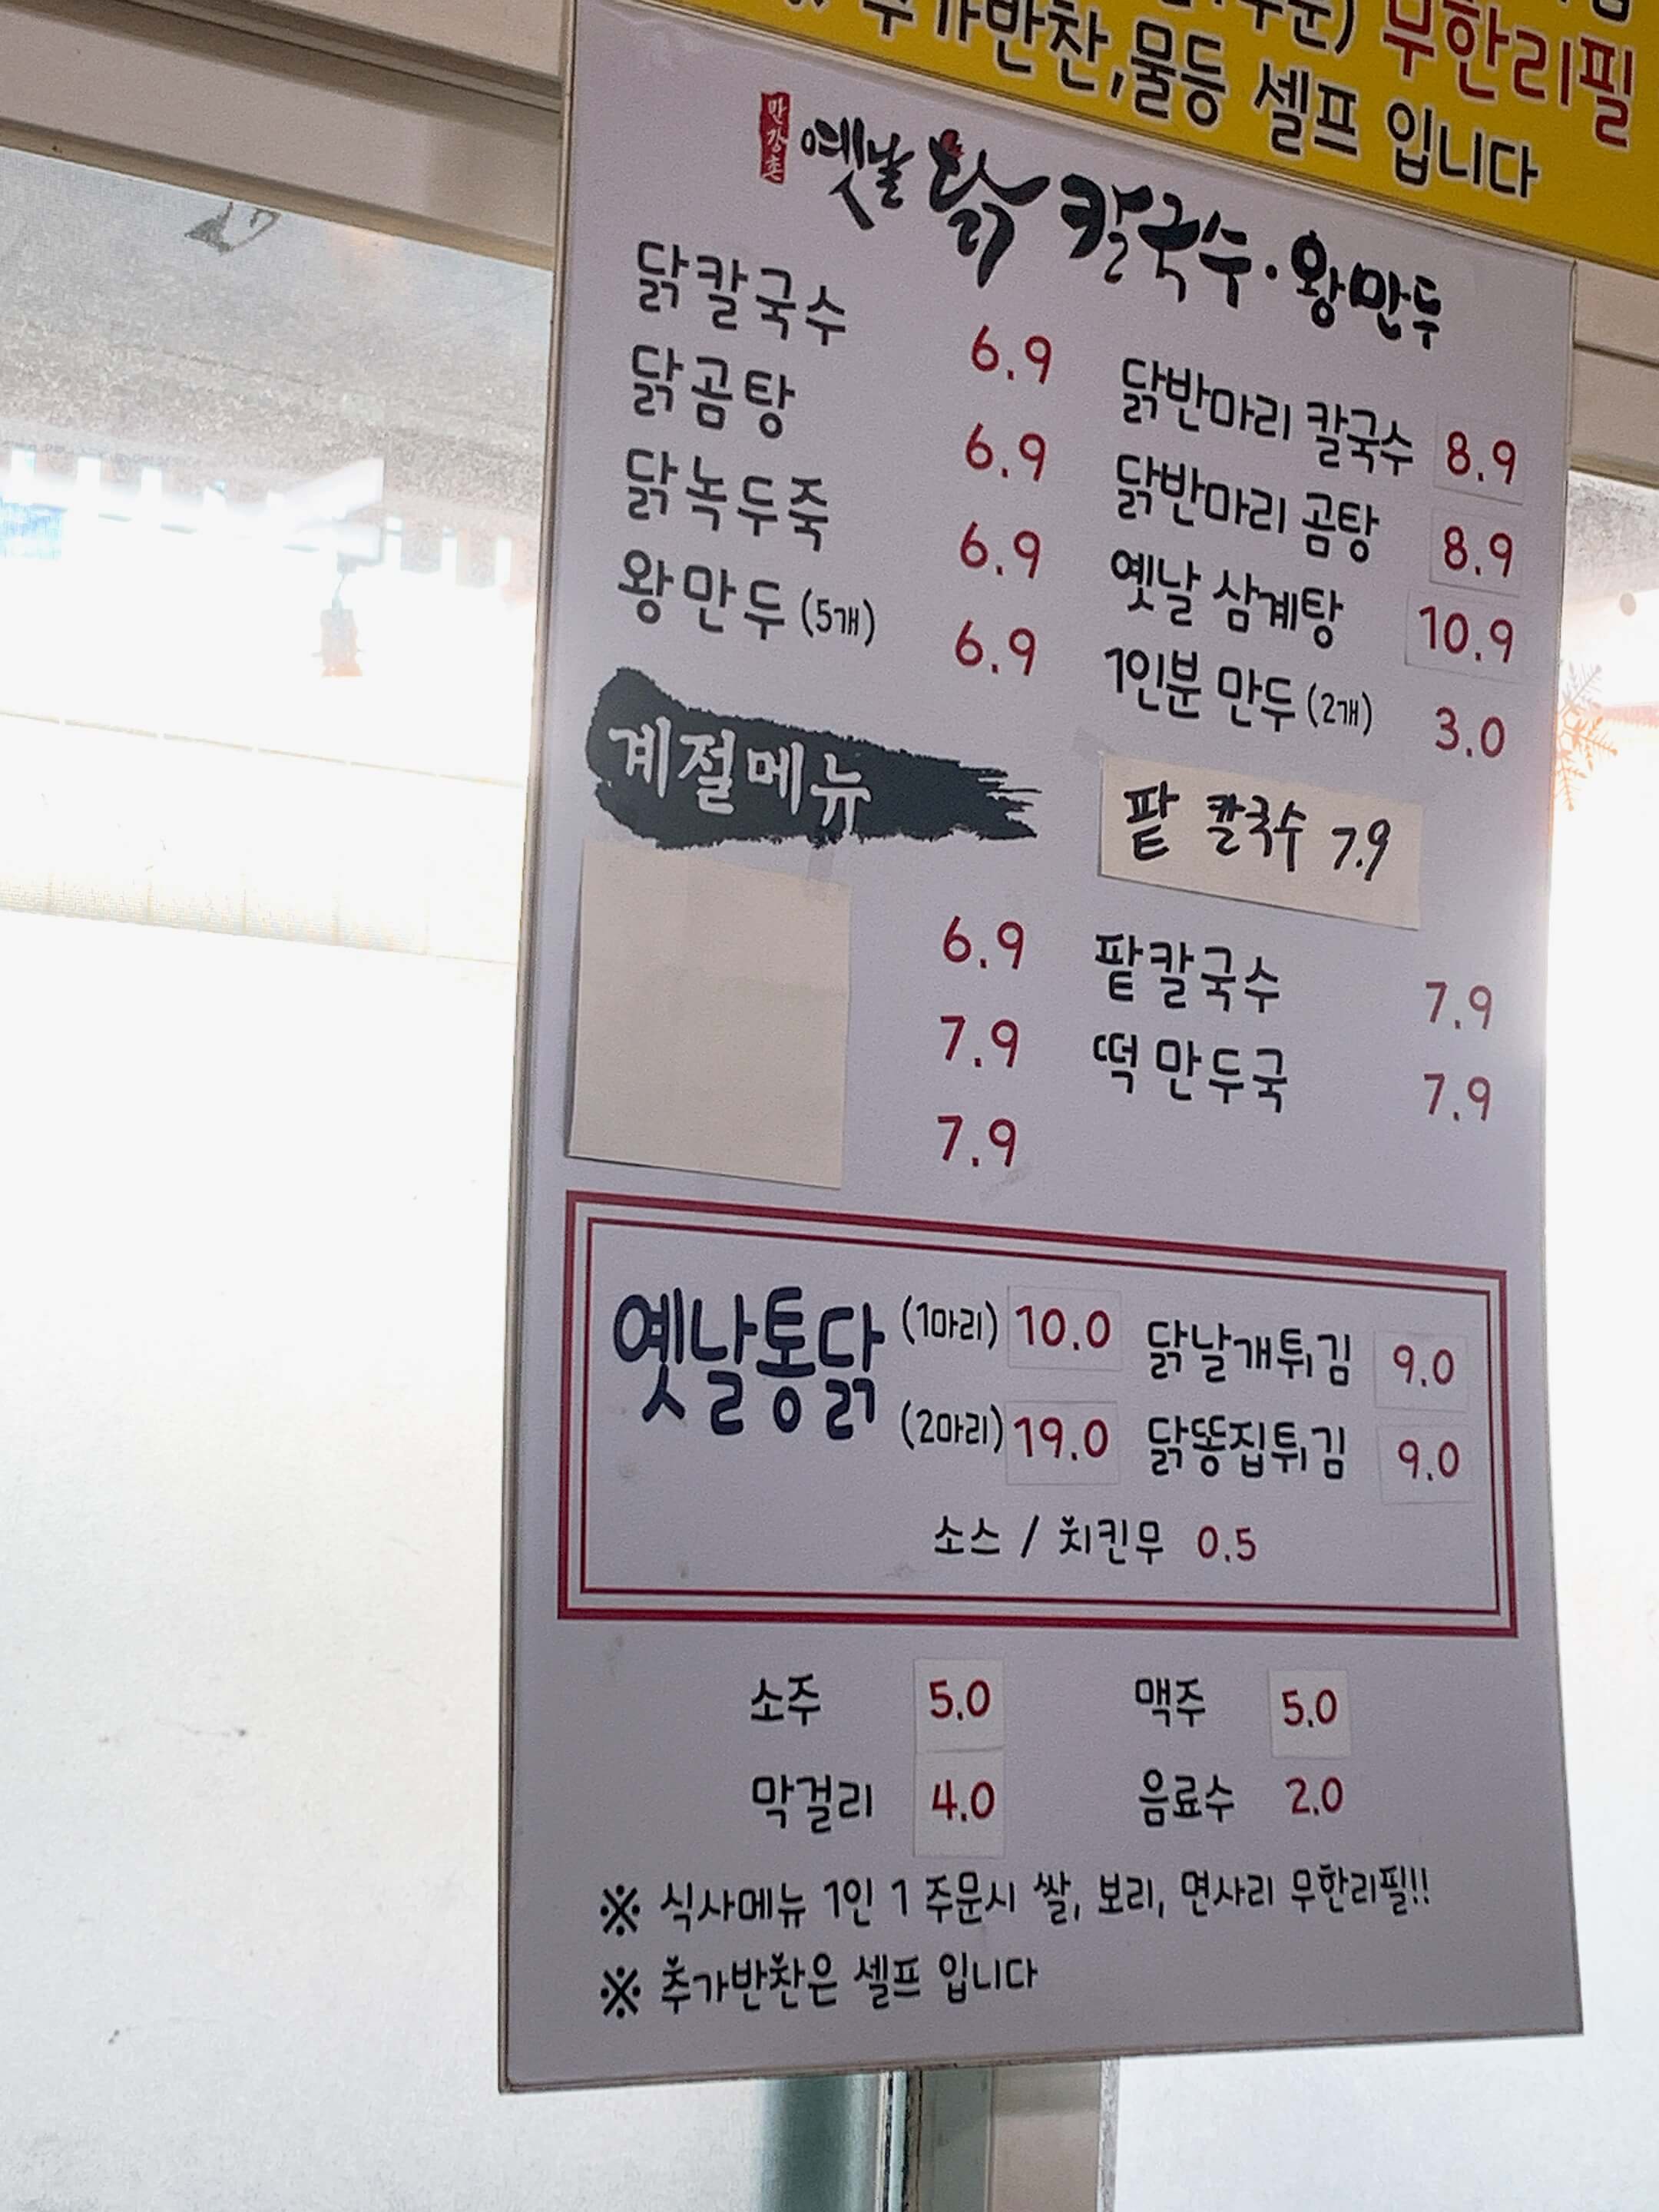 무한리필
추가반찬,물등 셀프 입니다
만강촌
옛날 닭 칼국수·왕만두
닭칼국수 6.9
닭곰탕 6.9
닭녹두죽 6.9
왕만두 (5개) 6.9
닭반마리 칼국수 8.9
닭반마리 곰탕 8.9
옛날 삼계탕 10.9
1인분 만두 (2개) 3.0
계절메뉴
팥 칼국수 7.9
6.9
7.9
7.9
팥칼국수 7.9
떡만두국 7.9
옛날통닭
(1마리) 10.0
(2마리) 19.0
닭날개튀김 9.0
닭똥집튀김 9.0
소스 / 치킨무 0.5
소주 5.0 맥주 5.0
막걸리 4.0 음료수 2.0
※ 식사메뉴 1인 1 주문시 쌀, 보리, 면사리 무한리필!!
※ 추가반찬은 셀프 입니다